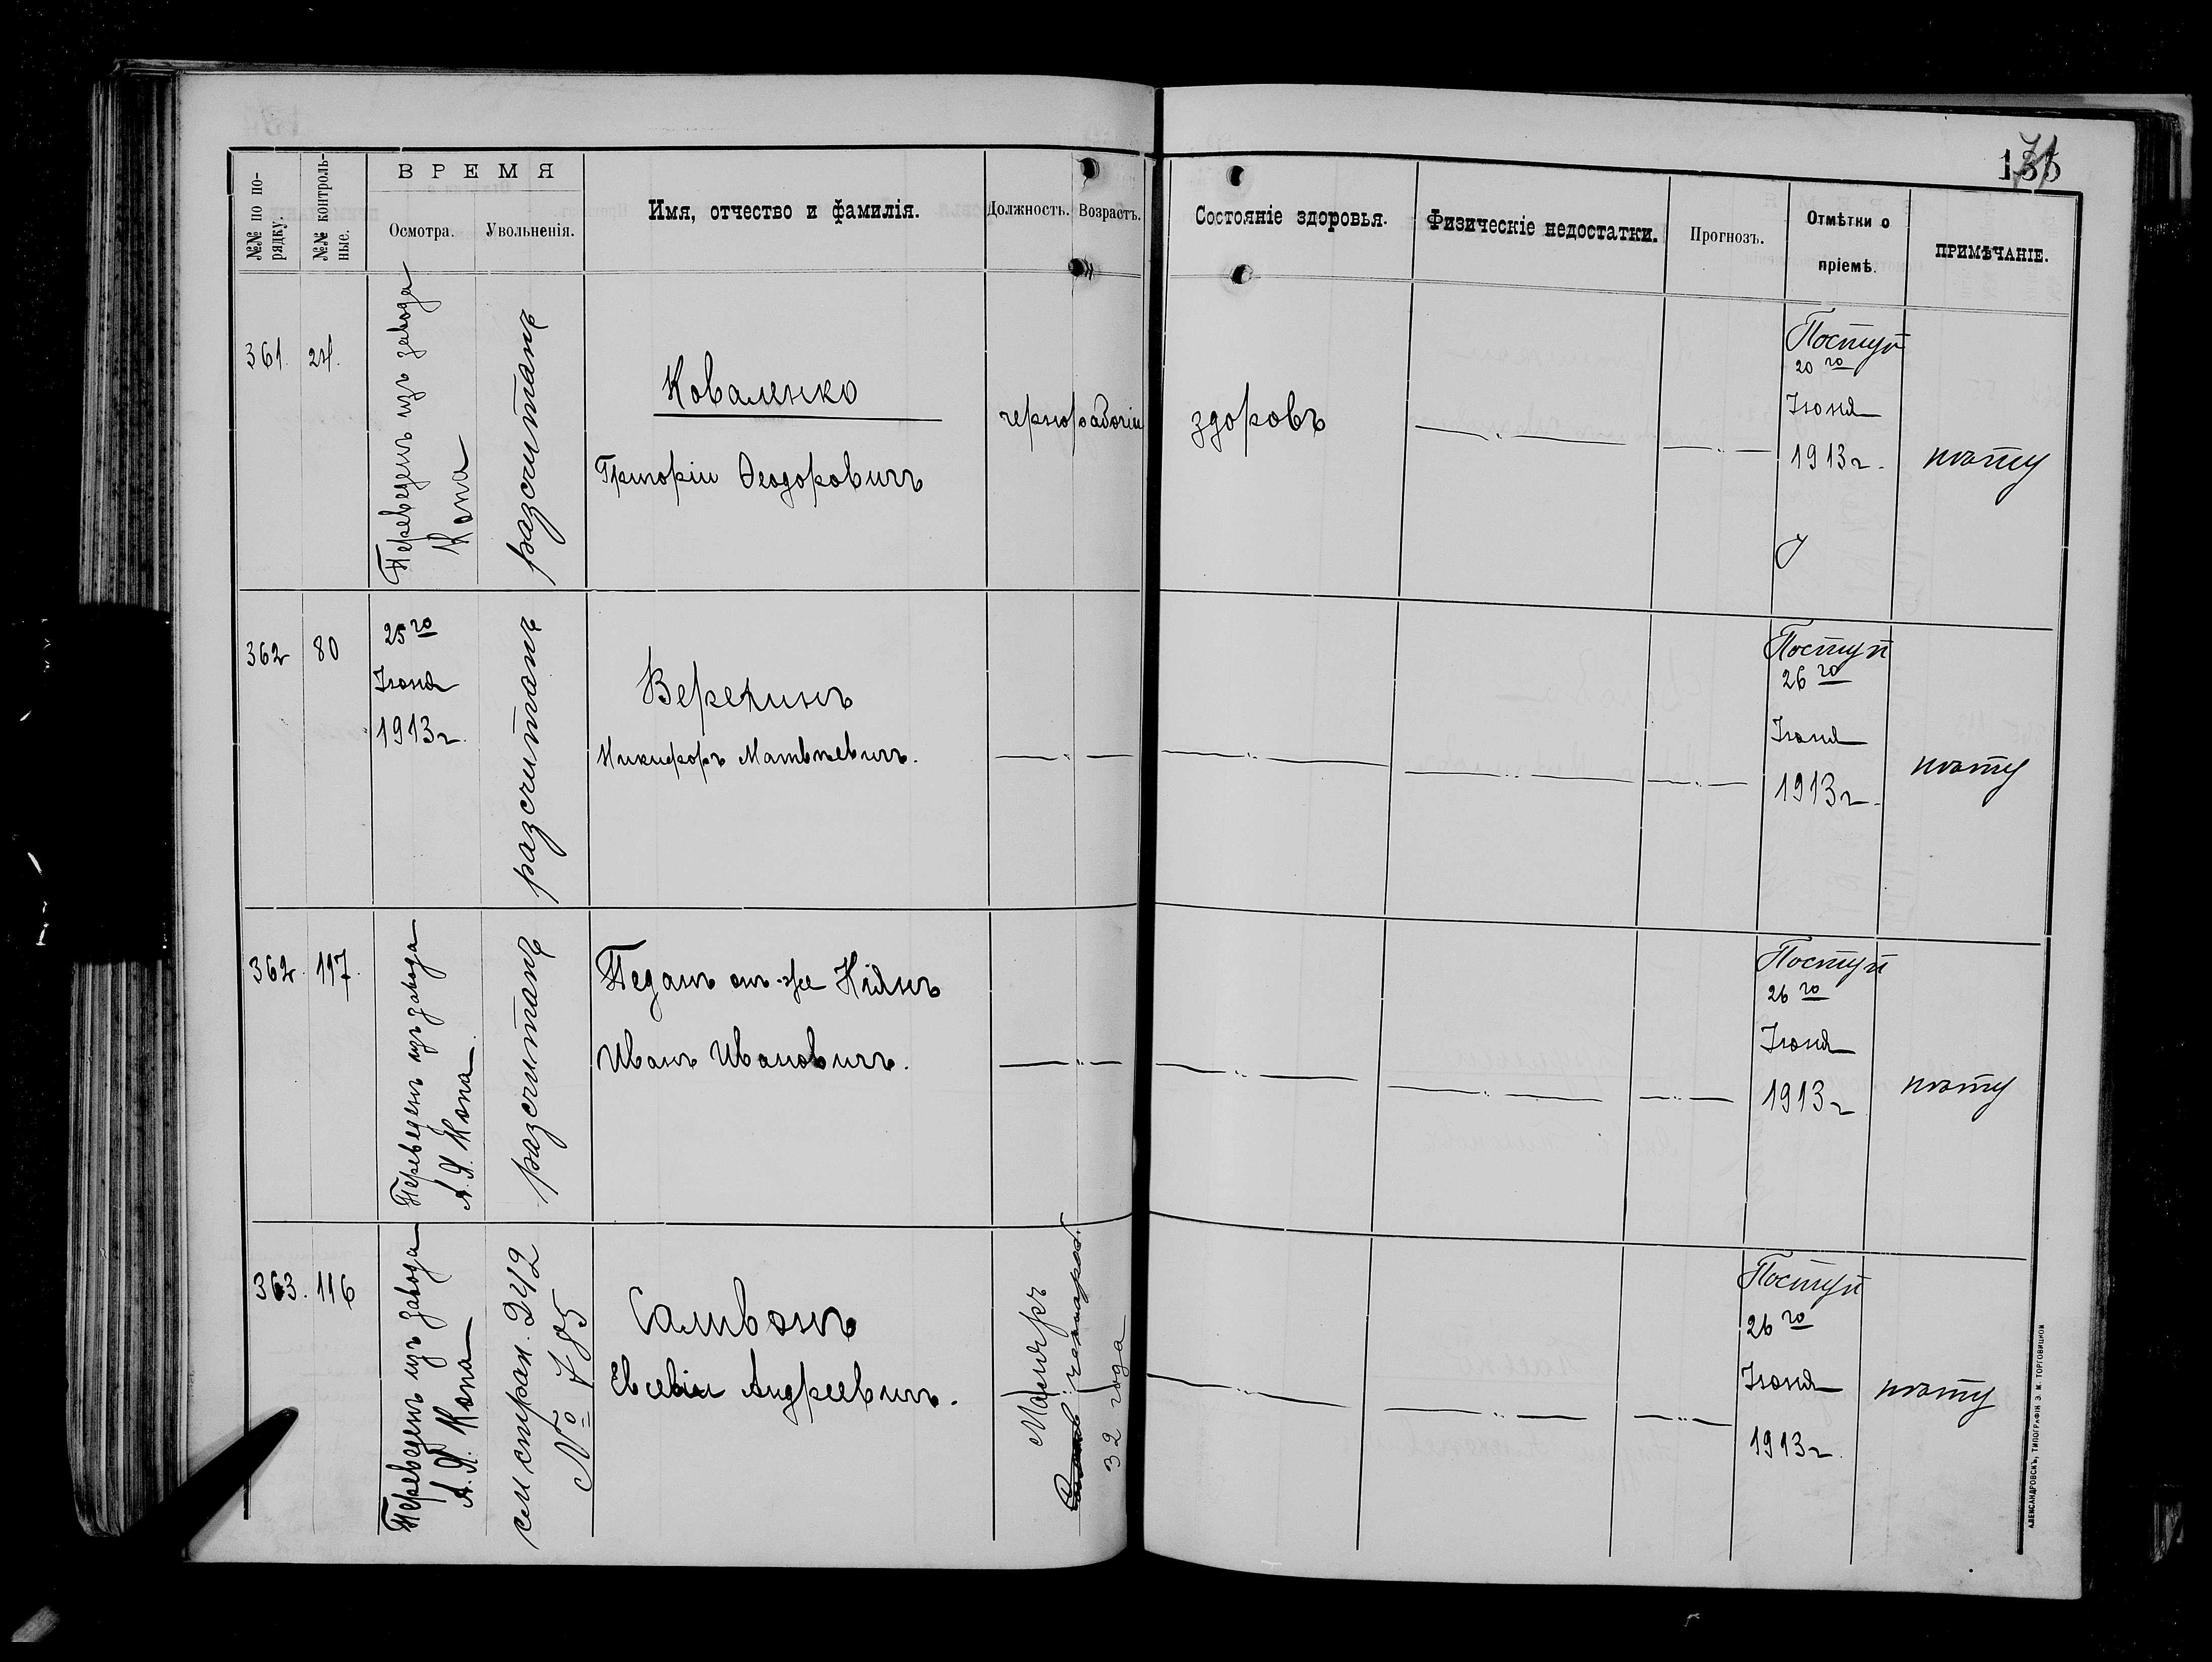 135
71
№№ по по-
рядку.
№№ контроль-
ные.
ВРЕМЯ
Осмотра.
Увольненія.
Имя, отчество и фамилія.
Должность.
Возрастъ.
Состояніе здоровья.
Физическіе недостатки.
Прогнозъ.
Отмѣтки о
пріемѣ.
ПРИМѢЧАНІЕ.
361. 24.
Переведенъ изъ завода
Копа
разсчитанъ
Коваленко
Григорій Феодоровичъ
чернорабочій
здоровъ
Поступ
20 го
Іюня
1913 г.
362 80
25 го
Іюня
1913 г.
разсчитанъ
Верехинъ
Никифоръ Матвѣевичъ.
Поступ
26 го
Іюня
1913 г.
362. 117.
Переведенъ изъ завода
А. Я. Копа.
разсчитанъ
Педанъ онъ-же Кіянъ
Иванъ Ивановичъ.
Поступ
26 го
Іюня
1913 г
363. 116
Переведенъ изъ завода
А. Я. Копа
см стран. 242
№ 785
Саливонъ
Евсевій Андреевичъ.
Маляръ
чернораб.
32 года
Поступ
26 го
Іюня
1913 г.
АЛЕКСАНДРОВСКЪ, ТИПОГРАФІЯ Э. М. ТОРГОВИЦКОЙ